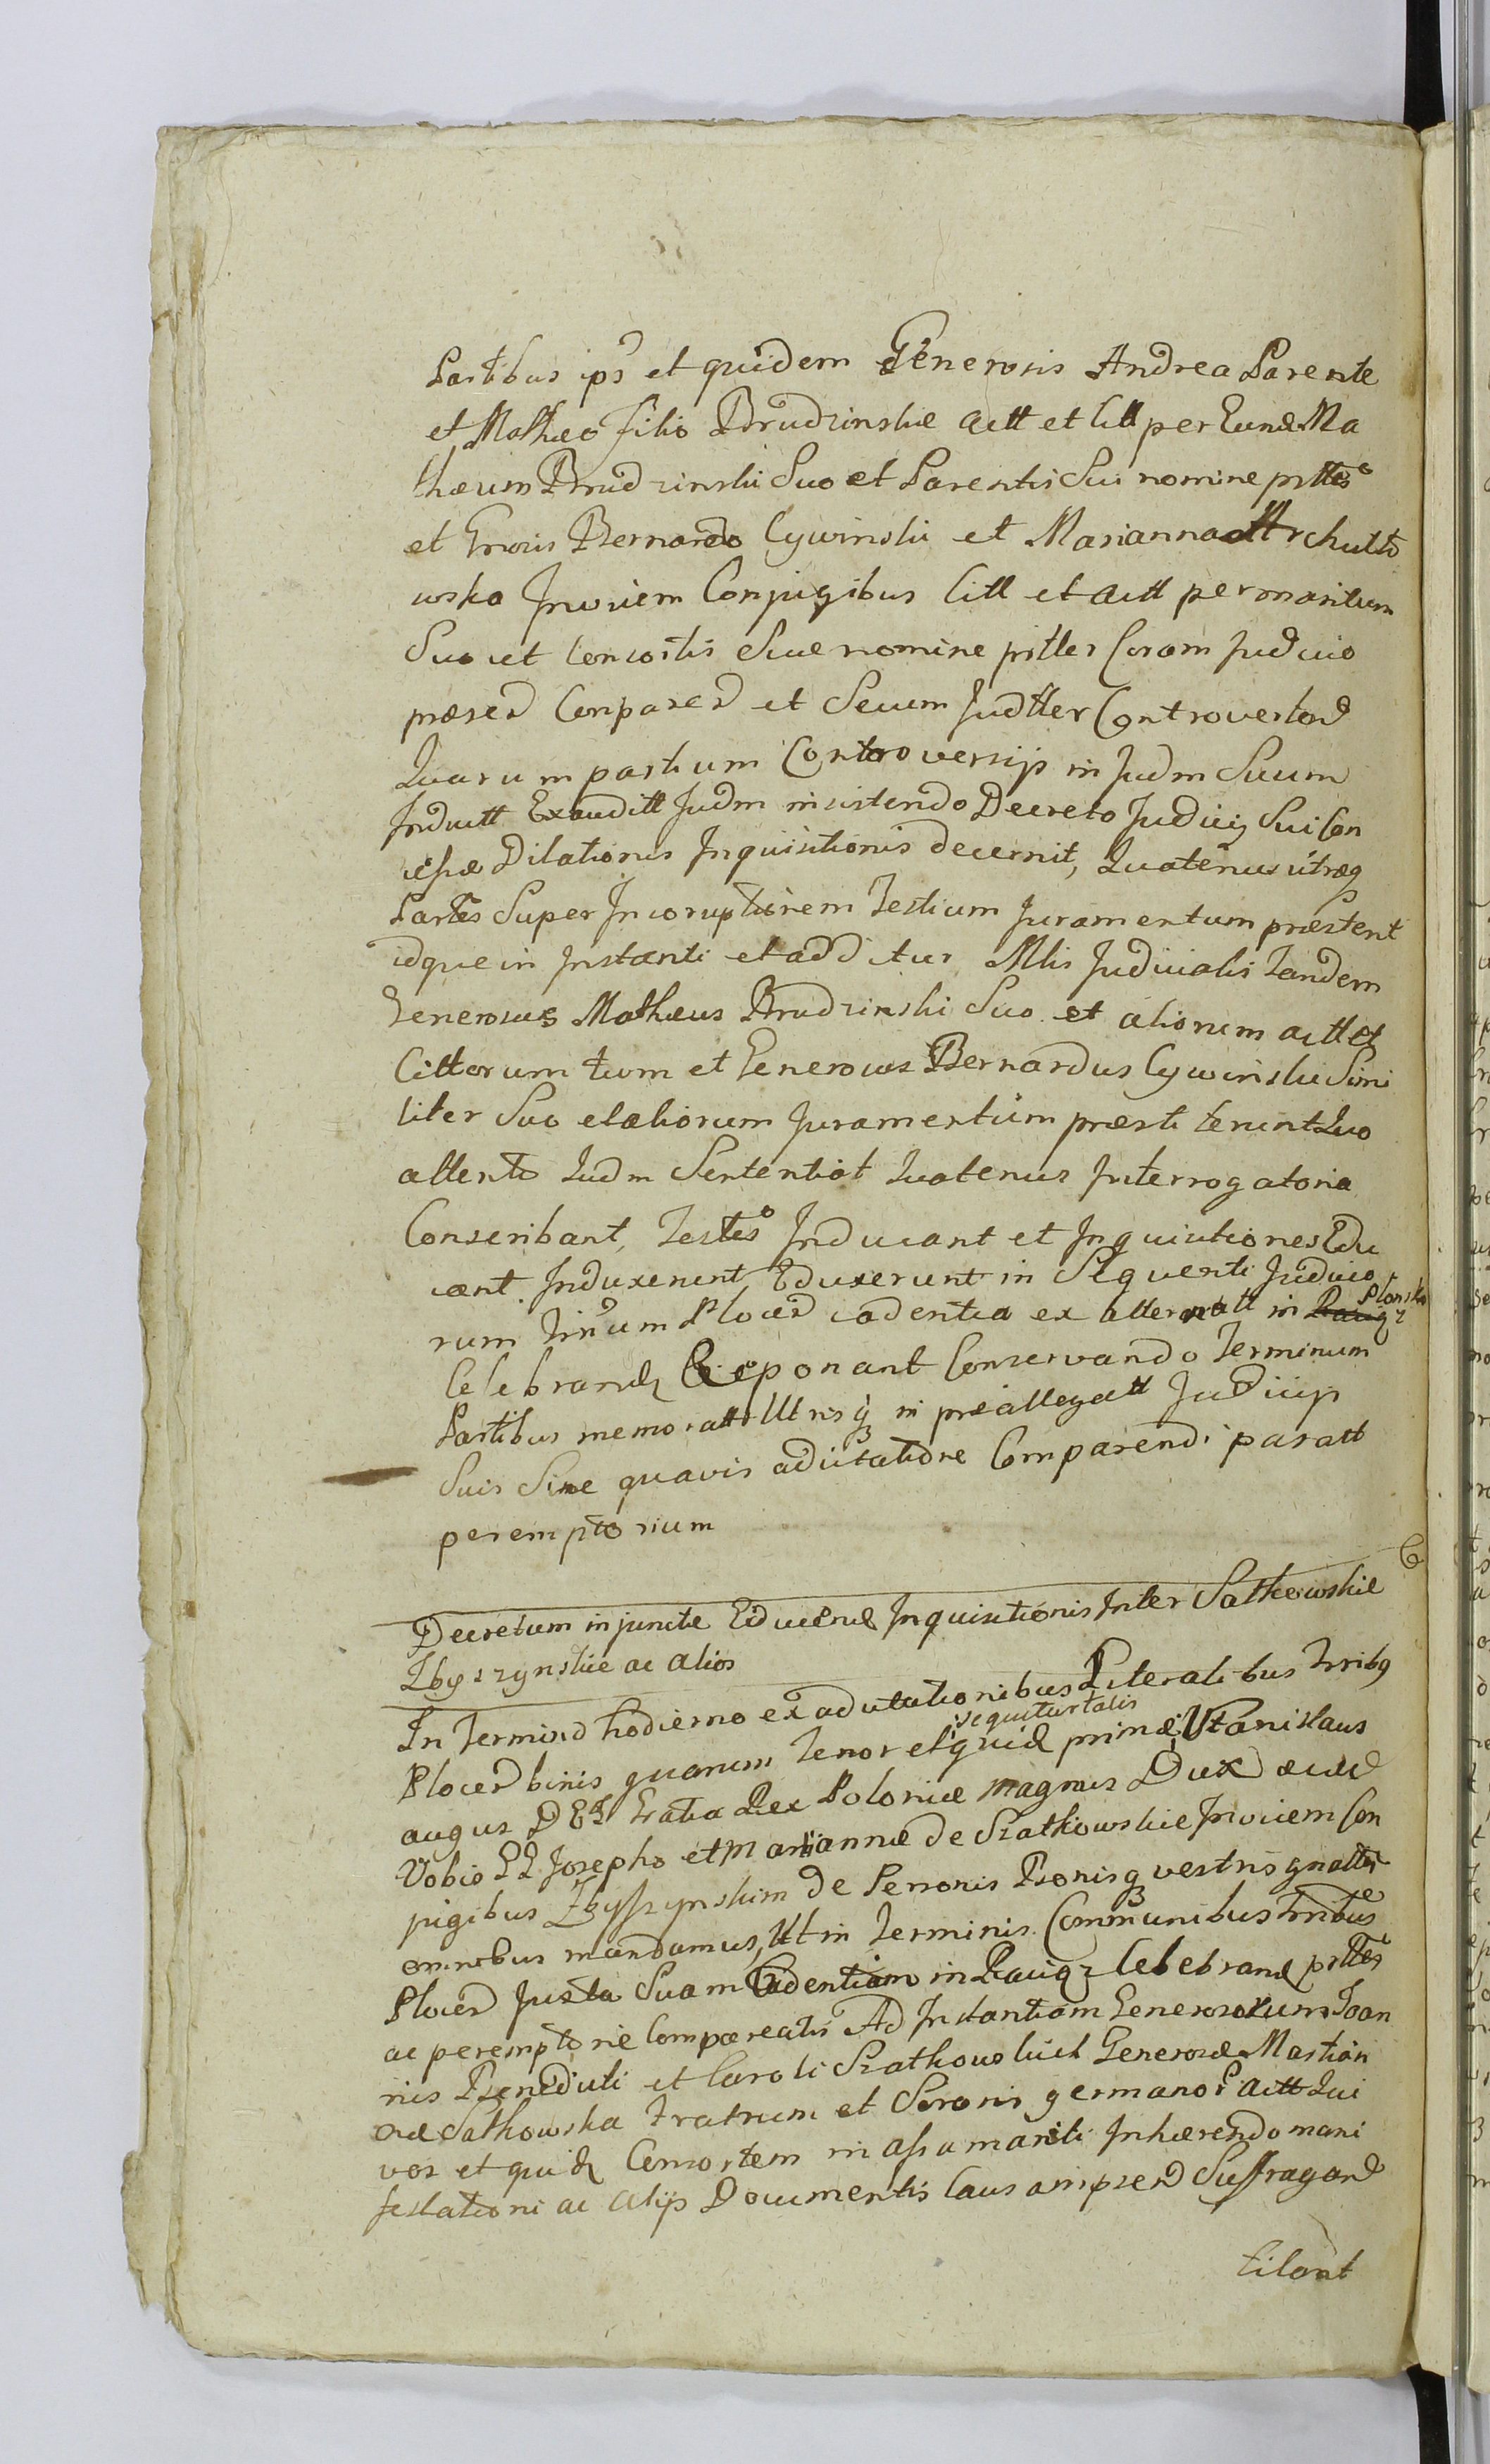 Partibus ips et quidem Generosis Andrea Parente
et Matheo filio Brudzinskie Actt et Citt per Eund Ma
thæum Brudzinski Suo et Parentis Sui nomine prttes
et Gnosis Bernardo Cywinski et Marianna
wska Invicem Conjugibus Citt et Actt per maritum
Suo et Consortis Suæ nomine prtter Coram Judicio
præsen Comparen et Secum Judtter Controverten
Quarum partium Controversijs in Judm Suum
Inductt Exauditt Judm insistendo Decreto Judicij Sui Con
cessæ Dilationis Inquisitionis decernit, Quatenus utræq
Partes Super Incoruptionem Testium Juramentum præstent
idque in Instanti et additur Mlis Judicialis Tandem
Generosus Matheus Brudzinski Suo et aliorum actt et
Cittorum tum et Generosus Bernardus Cywinski Simi
liter Suo et aliorum Juramentum præstiterunt Quo
attento Judm Sententiat Quatenus Interrogatoria
Conscribant, Testes Inducant et Inquisitiones Edu
cant. Induxerunt, Eduxerunt in Sequenti Judicio
rum Trrum Plocen cadentia ex alternatt in Raciąz Plonsko
Celebrand Reponant Conservando Terminum
Partibus memoratt Utrisq in præallegatt Judicijs
Suis Sine quavis adcitatione Comparendi paratt
peremptorium
Decretum injunctæ Educend Inquisitionis Inter Satkowskie
Zbyszynskie ac alios
In Termino hodierno ex adcitationibus Literalibus Trribq
Plocen binis quarum Tenor et quid primæ sequitur talis Stanislaus
augus DEI Gratia Rex Poloniæ magnus Dux
Vobis GG Josepho et Mariannæ de Szatkowskie Invicem Con
jugibus Zbyszynskim de Personis Bonisq vestris gnatter
omnibus mandamus, Ut in Terminis Communibus Trribus
Plocen Juxta Suam Cadentiam in Raciąz Celebrand prttes
ac peremptorie Compareatis Ad Instantiam Generosorum Joan
nis Benedicti et Caroli Szatkowskich Generosæ Martian
næ Satkowska Fratrum et Sororis germanor actt Qui
vos et quid Consortem in assa mariti Inhærendo mani
festationi ac alijs Documentis Caus ampsen Suffragand
Citant